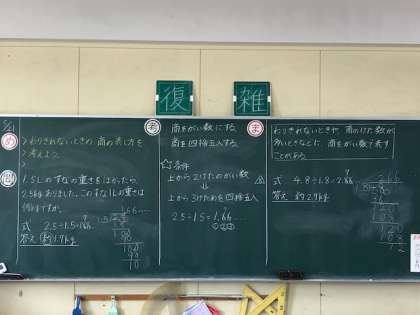 復 雑
め
わりきれないときの、商の表し方を
考えよう。
問
1.5Lのすなの重さをはかったら、
2.5kgありました。このすな1Lの重さは
何kgですか。
式 2.5÷1.5=1.66…
答え (約)1.7kg
考
商をがい数にする。
商を四捨五入する。
☆条件
上から2けたのがい数
↓
上から3けためを四捨五入
2.5÷1.5=1.66…
①②③
ま
わりきれないときや、商のけた数が
多いときなどに、商をがい数で表す
ことがある。
式 4.8÷1.8=2.66
答え 約2.7kg